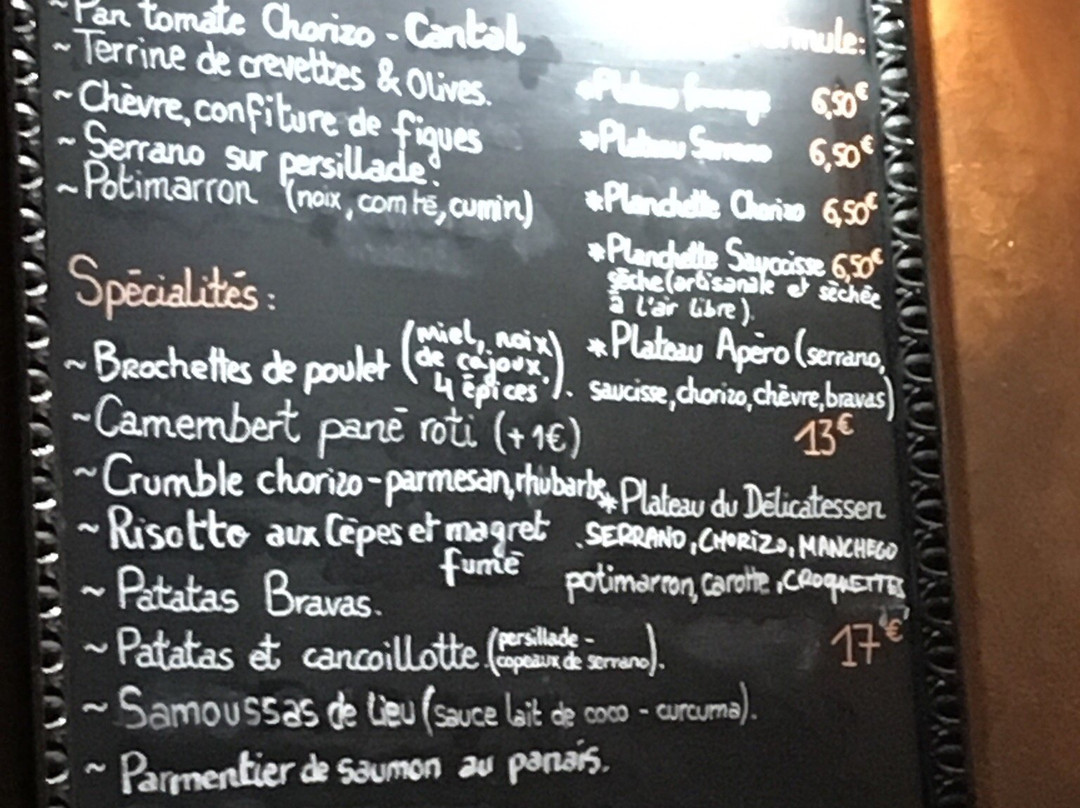 ~Pan tomate Chorizo - Cantal
~Terrine de crevettes & Olives.
~Chèvre, confiture de figues
~Serrano sur persillade!
~Potimarron (noix, comté, cumin)
Spécialités:
~Brochettes de poulet (miel, noix
de cajoux,
4 épices).
~Camembert pané roti (+1€)
~Crumble chorizo-parmesan, rhubarbe
~Risotto aux Cèpes et magret
fumé
~Patatas Bravas.
~Patatas et cancoillotte (persillade -
copeaux de serrano).
~Samoussas de lieu (sauce lait de coco - curcuma).
~Parmentier de saumon au panais.
*Plateau fromage 6,50€
*Plateau Serrano 6,50€
*Planchette Chorizo 6,50€
*Planchette Saucisse 6,50€
sèche (artisanale et séchée
à l'air libre).
*Plateau Apéro (serrano,
saucisse, chorizo, chèvre, bravas)
13€
*Plateau du Délicatessen
SERRANO, CHORIZO, MANCHEGO
potimarron, carotte, CROQUETTES
17€